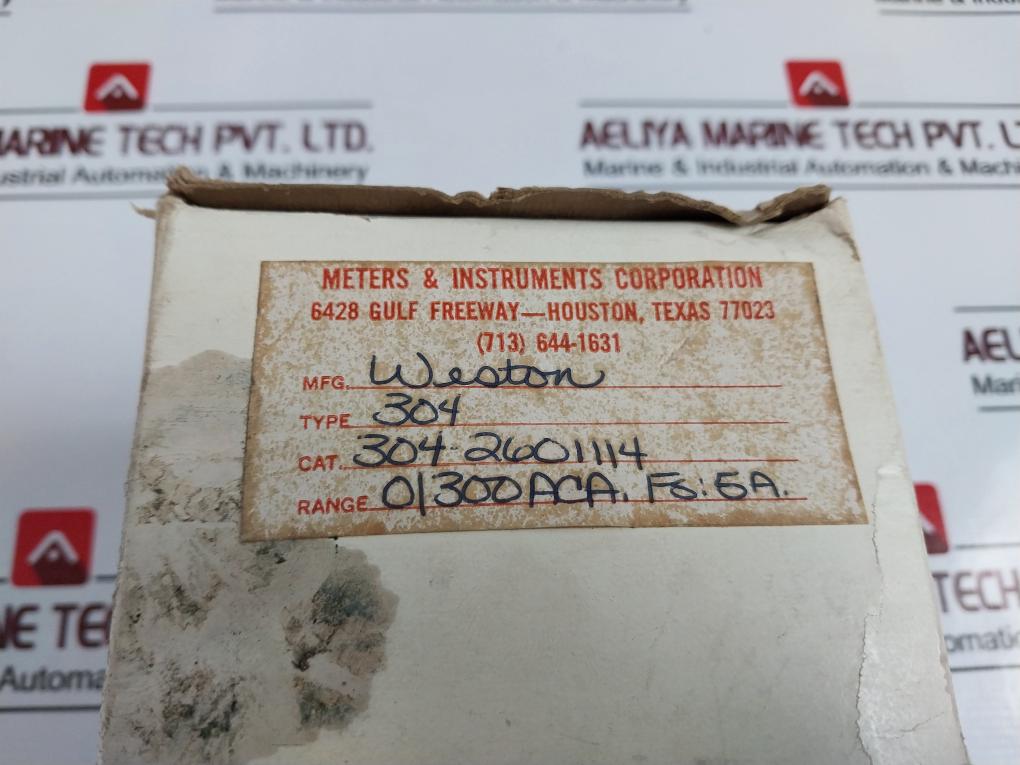 MARINE TECH PVT. LTD.
Industrial Automation & Machinery
AELIYA MARINE TECH PVT. L
Marine & Industrial Automation & Machine
METERS & INSTRUMENTS CORPORATION
6428 GULF FREEWAY—HOUSTON, TEXAS 77023
(713) 644-1631
MFG. Weston
TYPE 304
CAT. 304-2601114
RANGE 0/300 ACA. FS: 5A.
AEL
Mari
NE TE
Automa
TECH
omatic